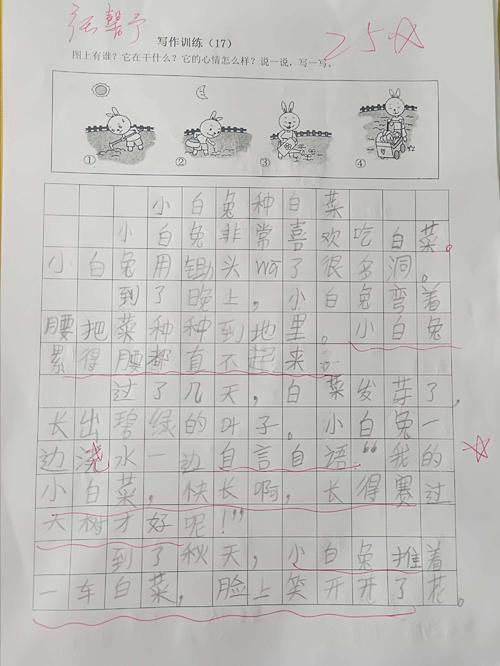 张馨予
25☆
写作训练（17）
图上有谁？它在干什么？它的心情怎么样？说一说，写一写。
① ② ③ ④
小白兔种白菜
小白兔非常喜欢吃白菜。
小白兔用锄头wā了很多洞。
到了晚上，小白兔弯着
腰把菜种种到地里。小白兔
累得腰都直不起来
过了几天，白菜发芽了，
长出碧绿的叶子。小白兔一
边浇水一边自言自语“我的
小白菜，快长啊，长得赛过
大树才好呢！”
到了秋天，小白兔推着
一车白菜，脸上笑开了花。